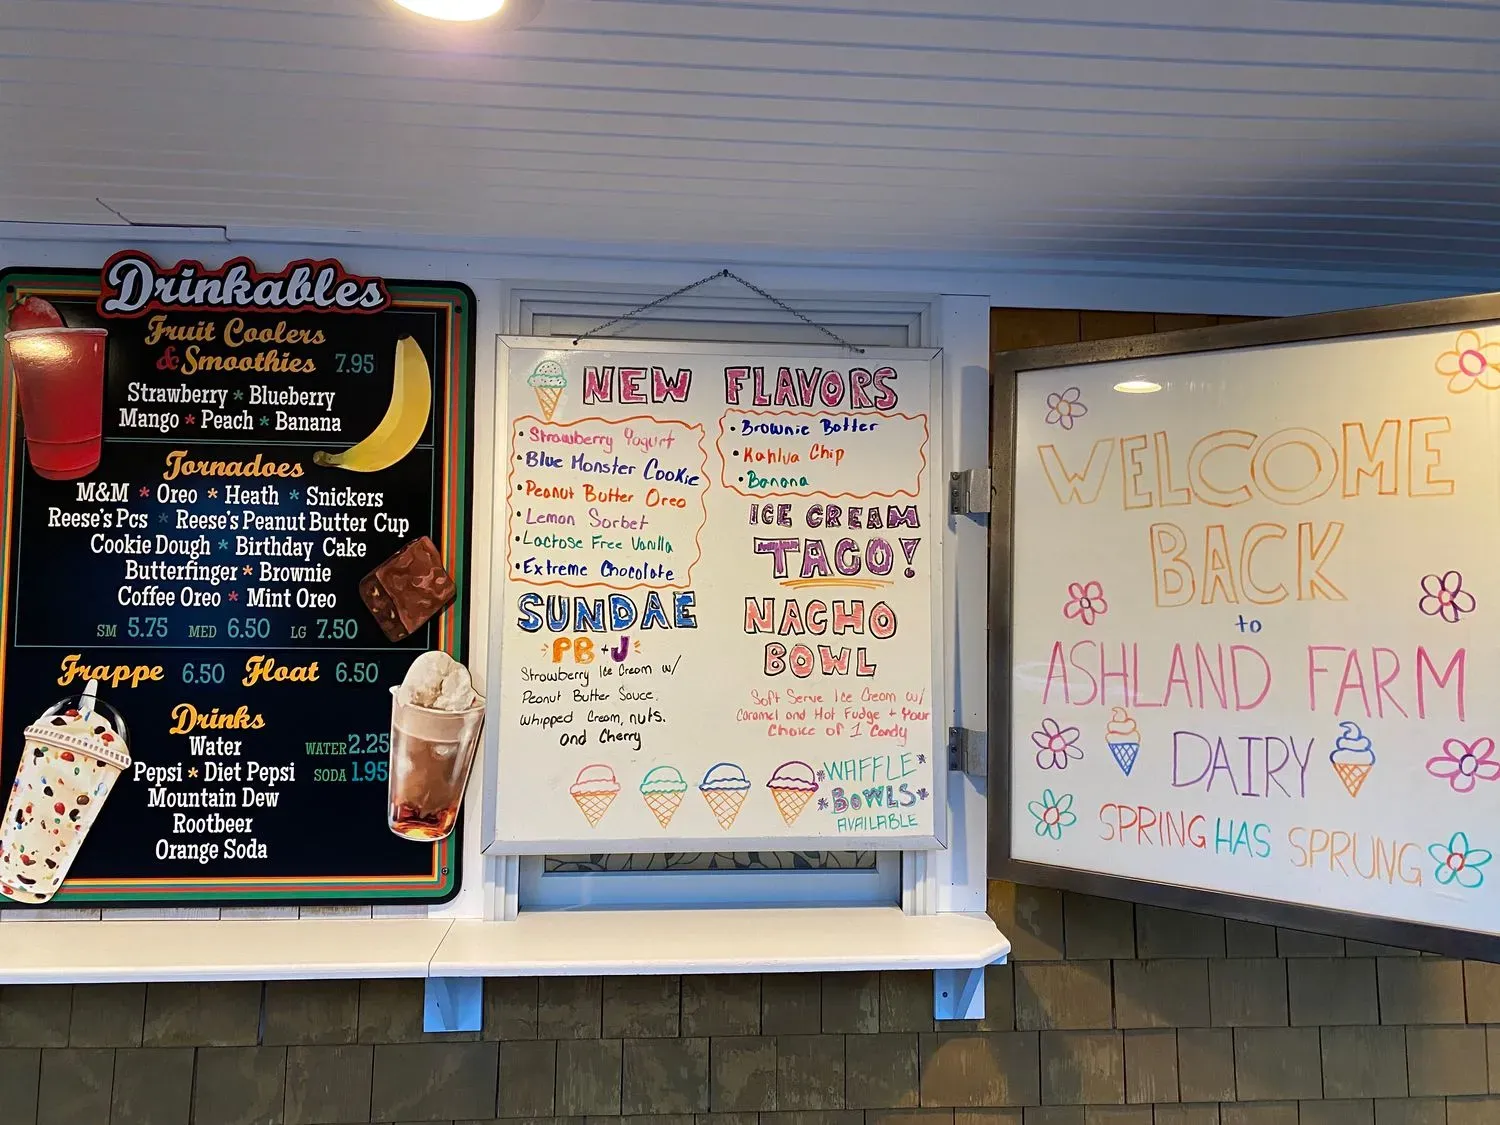 Drinkables
Fruit Coolers
& Smoothies 7.95
Strawberry * Blueberry
Mango * Peach * Banana
Tornadoes
M&M * Oreo * Heath * Snickers
Reese's Pcs * Reese's Peanut Butter Cup
Cookie Dough * Birthday Cake
Butterfinger * Brownie
Coffee Oreo * Mint Oreo
SM 5.75 MED 6.50 LG 7.50
Frappe 6.50 Float 6.50
Drinks
Water WATER 2.25
Pepsi * Diet Pepsi SODA 1.95
Mountain Dew
Rootbeer
Orange Soda
NEW FLAVORS
• Strawberry Yogurt
• Blue Monster Cookie
• Peanut Butter Oreo
• Lemon Sorbet
• Lactose Free Vanilla
• Extreme Chocolate
• Brownie Batter
• Kahlua Chip
• Banana
ICE CREAM
TACO!
SUNDAE
PB + J
Strawberry Ice Cream w/
Peanut Butter Sauce,
whipped Cream, nuts.
and Cherry
NACHO
BOWL
Soft Serve Ice Cream w/
Caramel and Hot Fudge + Your
Choice of 1 Candy
*WAFFLE*
*BOWLS*
AVAILABLE
WELCOME
BACK
to
ASHLAND FARM
DAIRY
SPRING HAS SPRUNG